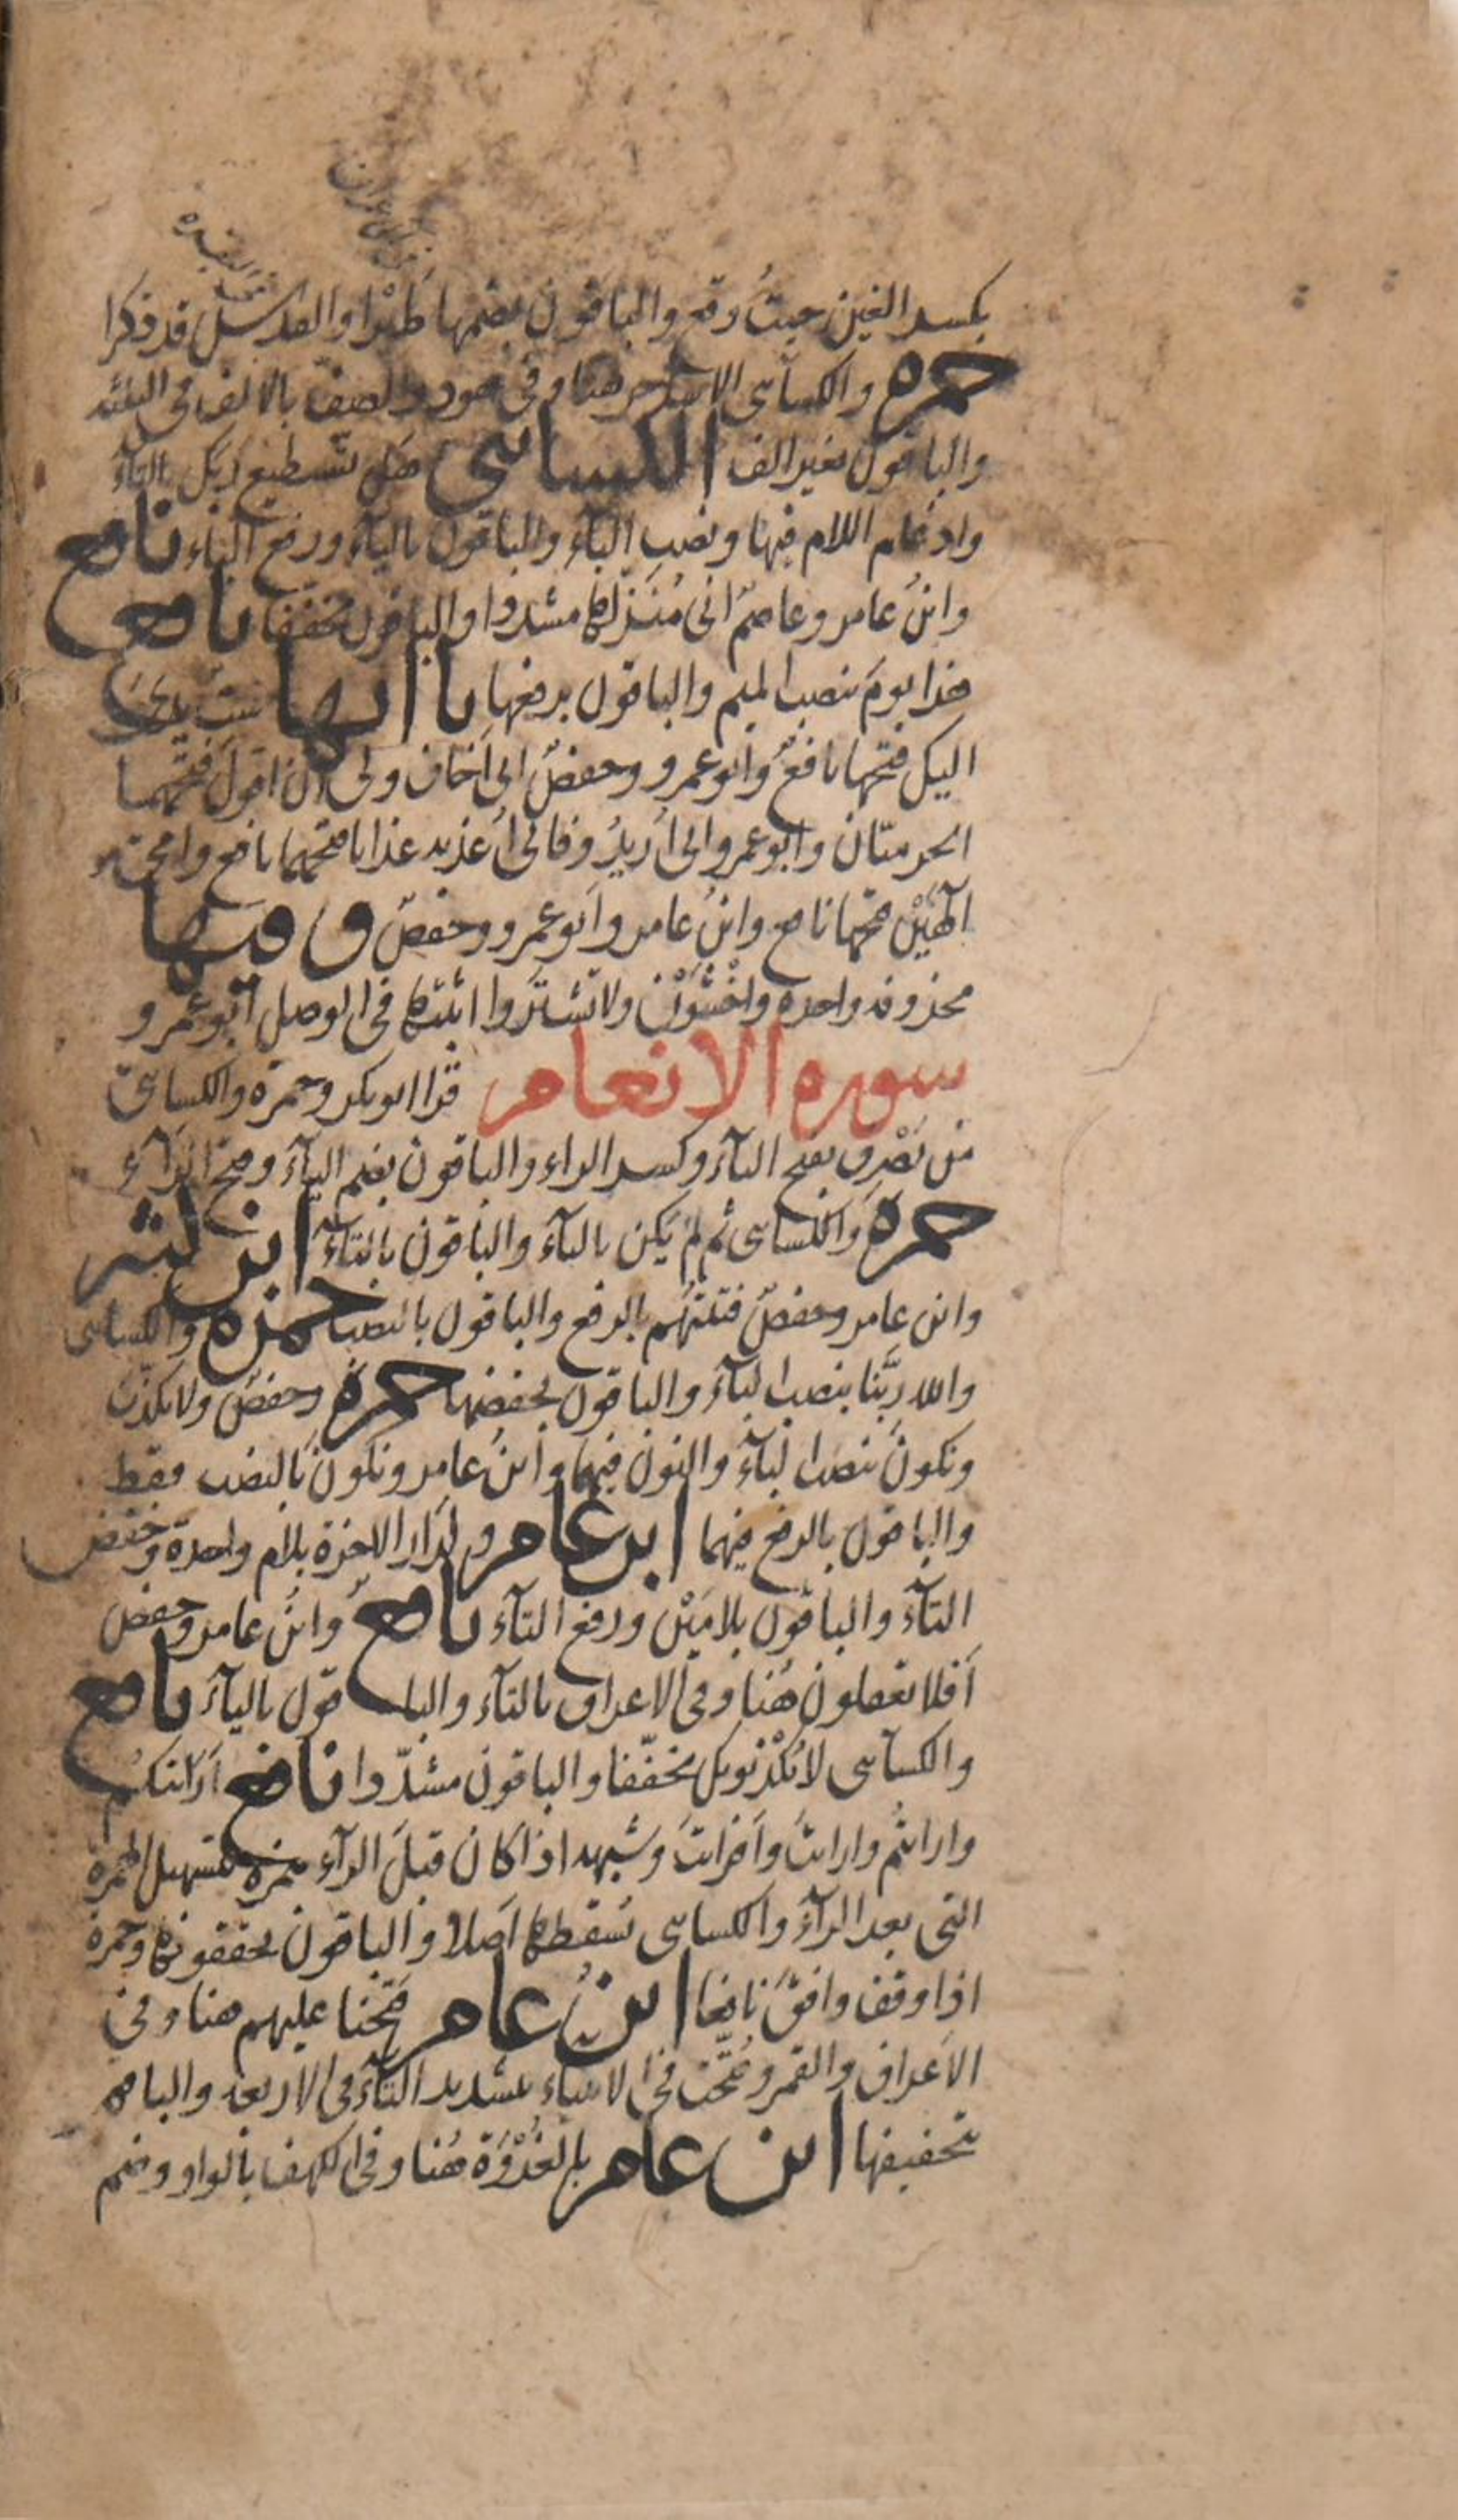 في آل عمران
في البقرة
بكسر الغين حيث وقع والباقون بضمها طيرا والقدس قد ذكرا
حمزة والكسائى الا ساحر هنا وفى هود والصف بالالف فى الثلثة
والباقون بغير الف الكسائى هل تستطيع ربك بالتاء
وادغام اللام فيها ونصب الباء والباقون بالياء ورفع الباء نافع
وابن عامر وعاصم انى منزلها مشددا والباقون مخففا نافع
هذا يوم بنصب الميم والباقون برفعها ياآتها ست يدى
اليك فتحها نافع وابو عمرو وحفص انى اخاف ولى ان اقول فتحهما
الحرميان وابو عمرو انى اريد وفانى اعذبه عذابا فتحهما نافع وامى
الهين فتحها نافع وابن عامر وابو عمرو وحفص وفيها
محذوفه واحده واخشون ولا تشتروا اثبتها فى الوصل ابو عمرو
سورة الانعام قرا ابو بكر وحمزة والكسائى
من يصرف بفتح الياء وكسر الراء والباقون بضم الياء وفتح الراء
حمزة والكسائى ثم لم يكن بالياء والباقون بالتاء ابن كثير
وابن عامر وحفص فتنتهم بالرفع والباقون بالنصب حمزة والكسائى
والله ربنا بنصب الباء والباقون بخفضها حمزة وحفص ولا نكذب
ونكون بنصب الباء والنون فيهما وابن عامر ونكون بالنصب فقط
والباقون بالرفع فيهما ابن عامر ولدار الاخرة بلام واحدة وخفض
التاء والباقون بلامين ورفع التاء نافع وابن عامر وحفص
افلا تعقلون هنا وفى الاعراف بالتاء والباقون بالياء نافع
والكسائى لا يكذبونك مخففا والباقون مشددا نافع ارايتكم
وارايتم وارايت وافرايت وشبهه اذا كان قبل الراء همزة بتسهيل الهمزة
التى بعد الراء والكسائى يسقطها اصلا والباقون يحققونها وحمزة
اذا وقف وافق نافعا ابن عامر فتحنا عليهم هنا وفى
الاعراف والقمر وفتحت فى الانبياء بتشديد التاء فى الاربعة والباقون
بتخفيفها ابن عامر بالغدوة هنا وفى الكهف بالواو وضم